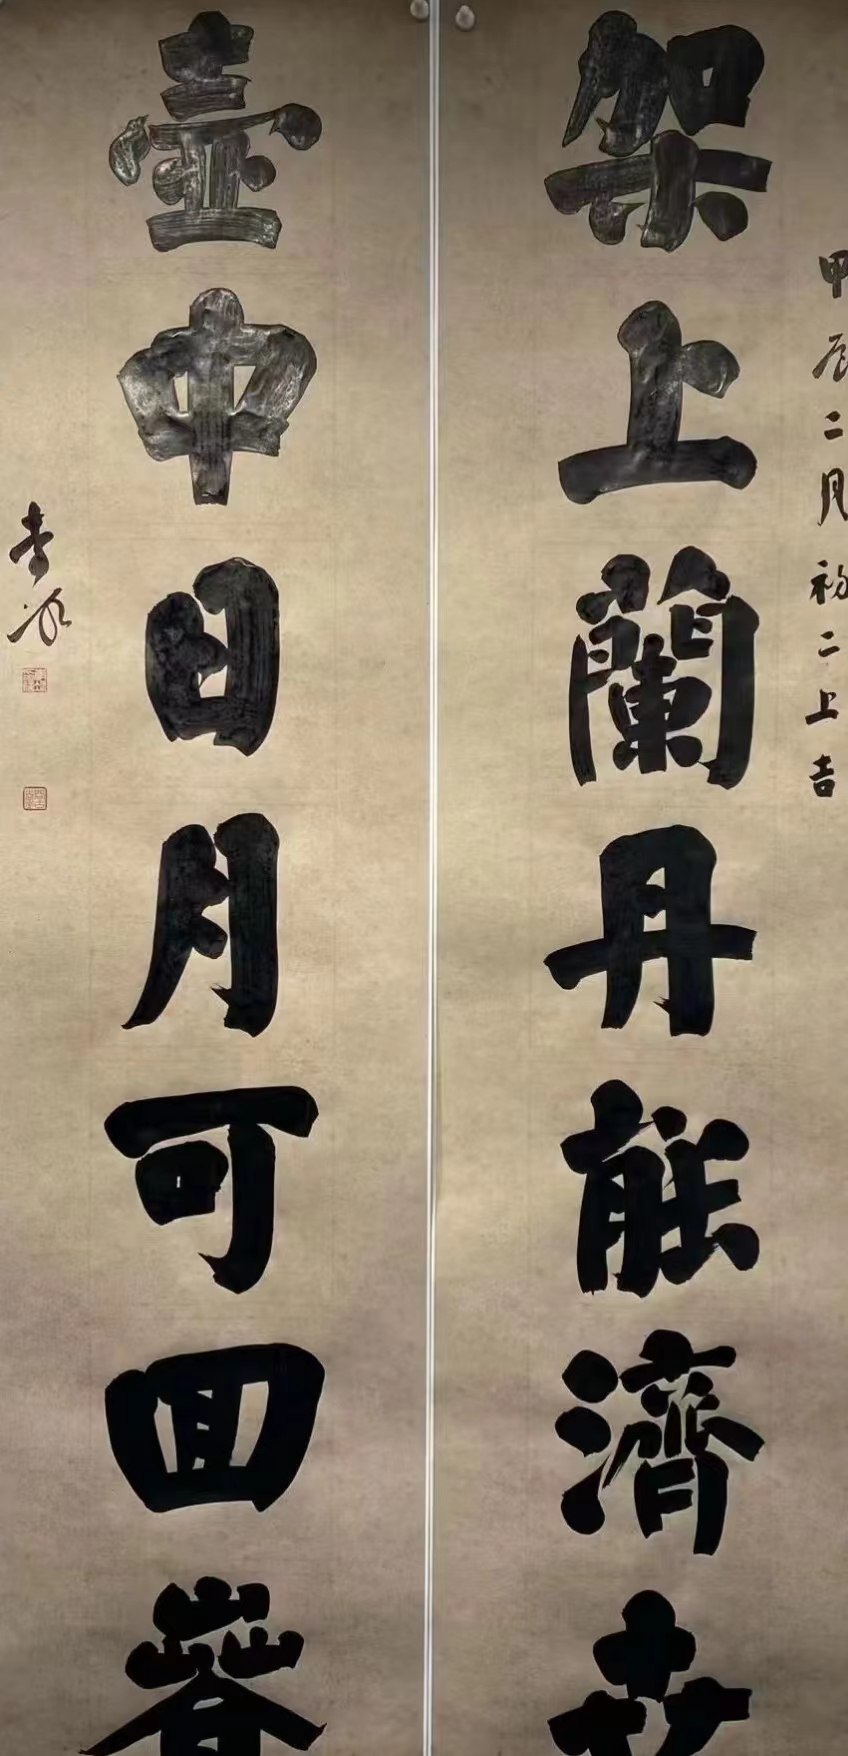 甲辰二月初二上吉
架上蘭丹能濟世
壺中日月可回春